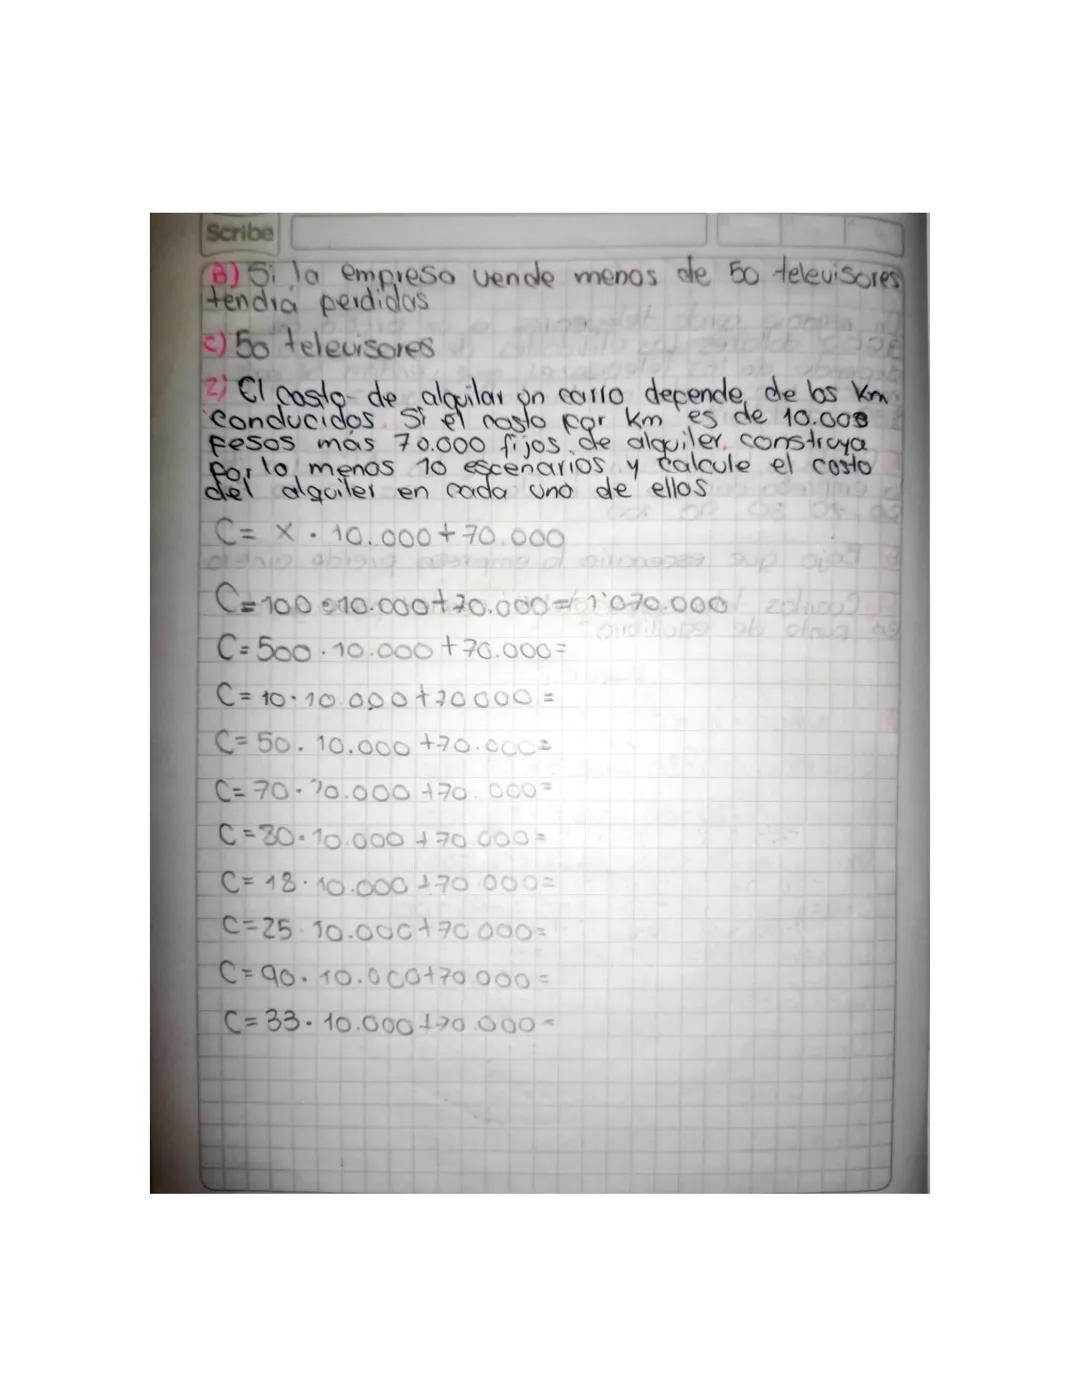 Scribe
B) Si la empresa vende menos de 50 televisores
tendría perdidas
c) 50 televisores
2) El costo de alquilar un carro depende de los Km
conducidos. Si el costo por Km es de 10.000
pesos más 70.000 fijos de alquiler, construya
por lo menos 10 escenarios y calcule el costo
del alquiler en cada uno de ellos
C= X · 10.000 + 70.000
C= 100 · 10.000 + 70.000 = 1'070.000
C= 500 · 10.000 + 70.000=
C= 10 · 10.000 + 70000 =
C= 50 · 10.000 + 70.000=
C= 70 · 10.000 + 70.000=
C= 80 · 10.000 + 70 000=
C= 18 · 10.000 + 70 000=
C= 25 · 10.000 + 70 000=
C= 90 · 10.000 + 70.000 =
C= 33 · 10.000 + 70.000 =